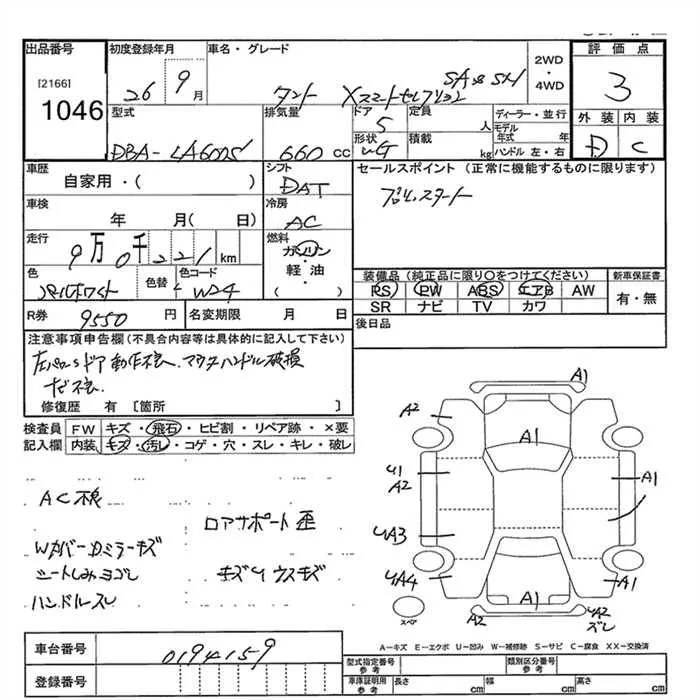 出品番号
[2166]
1046
初度登録年月
26 9月
車名・グレード
タント Xスマートセレクション SA & SH
2WD
・
4WD
評価点
3
外装 内装
D C
型式
DBA-LA600S
排気量
660 cc
ドア
5
形状
定員
人
積載
kg
ディーラー・並行
モデル年式 年
ハンドル 左・右
車歴
自家用・( )
シフト
DAT
セールスポイント (正常に機能するものに限ります)
車検
年 月( 日)
冷房
AC
走行
9万0千221km
燃料
ガソリン・
軽油・
( )
色
色替
色コード
W24
装備品 (純正品に限り○をつけてください)
PS PW ABS エアB AW
SR ナビ TV カワ
新車保証書
有・無
R券 9550円
名変期限 月 日
後日品
注意事項申告欄 (不具合内容等は具体的に記入して下さい)
左パワースドア動作不良、アウターハンドル破損
修復歴 有 [箇所 ]
検査員記入欄
FW キズ・飛石・ヒビ割・リペア跡・×要
内装 キズ・汚レ・コゲ・穴・スレ・キレ・破レ
AC不良
ロアサポート歪
Wカバー・Dミラーキズ
シートしみヨゴレ
キズ々ウスキズ
ハンドルスレ
A1
A2
A1
U1
A2
A1
UA3
UA4
A1
A1
A2
UA2
ズレ
スペア
A-キズ E-エクボ U-凹み W-補修跡 S-サビ C-腐食 XX-交換済
車台番号
0194159
登録番号
型式指定番号
参考
類別区分番号
参考
車庫証明用
参考
長さ cm
幅 cm
高さ cm